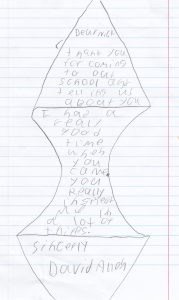 Dear mr.
thank you
for coming
to our
school and
telling us
about you
I had a
realy
good
time
when
you
came
you
Really
me in
a lot of
things.
sincerly
David